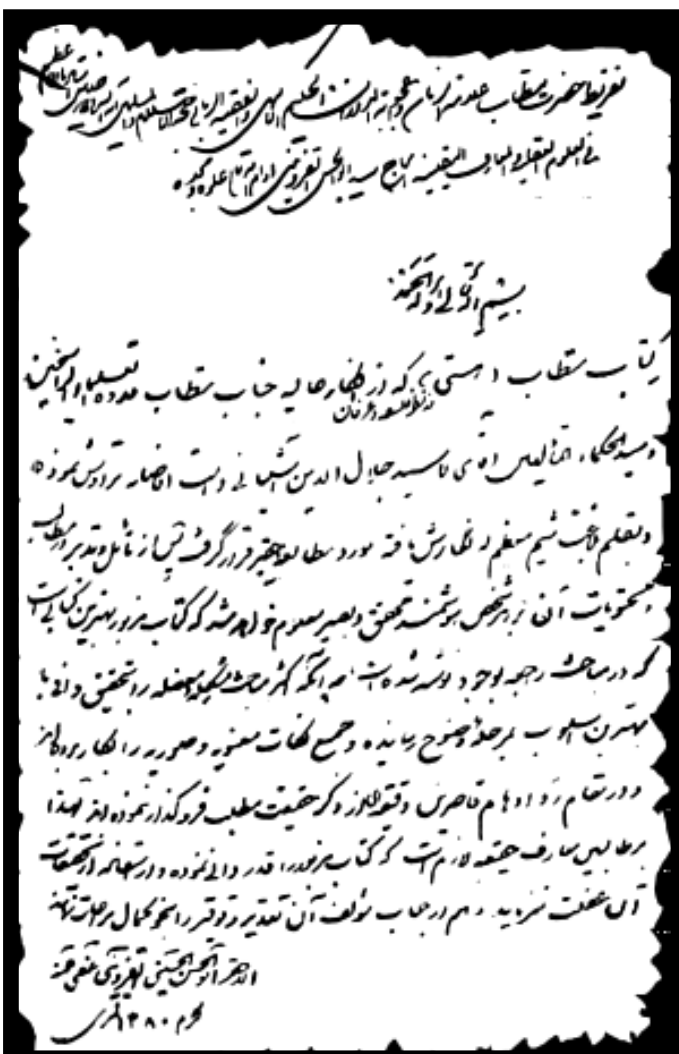 تقریظ حضرت مستطاب علامة الزمان و اعجوبة الدوران الحکیم الالهی و الفقیه الربانی حجة الاسلام و المسلمین
فی العلوم العقلیة و المعارف الیقینیة الحاج سید ابوالحسن القزوینی ادام الله علوه و مجده
بسم الله تعالی وله الحمد
کتاب مستطاب هستی که از افکار عالیه جناب مستطاب عمدة العلماء الراسخین
از نظر فلسفه و عرفان
و سید الحکماء المتألهین آقای آقا سید جلال الدین آشتیانی دامت افاضاته تراوش نموده
و بقلم شیم معظم له نگارش یافته مورد مطالعه حقیر قرار گرفت پس از تأمل و تدبر در مطالب
و محتویات آن بر هر شخص هوشمند محقق و بصیر معلوم خواهد شد که کتاب مزبور بهترین کتابی است
که در مباحث راجعه بوجود نوشته شده است چه آنکه اکثر مباحث مشکله و معضله را بتحقیق وافی با
بهترین اسلوب بمرحله وضوح رسانیده و جمیع نکات معنویه و صوریه را بکار برده‌اند
و در مقام رد اوهام قاصرین دقیقه‌ای از ذکر حقیقت مطلب فروگذار ننموده‌اند لهذا
بر طالبین معارف حقیقیه لازم است که کتاب مزبور را قدردانی نموده و از استفاده از تحقیقات
آن غفلت نورزید و هم از جناب مؤلف آن تقدیر و توقیر را بنحو کمال مراعات نمایند
الاحقر ابوالحسن الحسینی القزوینی عفی عنه
محرم ۱۳۸۰ قمری